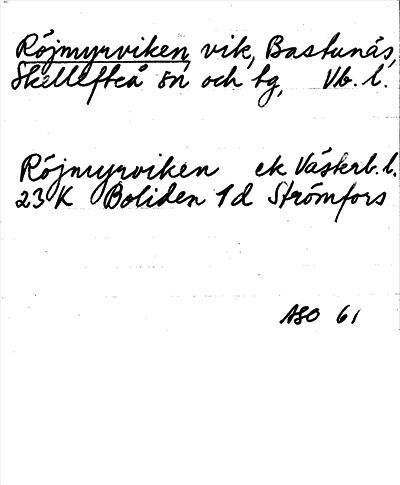 Röjmyrviken, vik, Bastunäs,
Skellefteå sn och tg, Vb. l.
Röjmyrviken ek Västerb. l.
23 K Boliden 1 d Strömfors
ASO 61